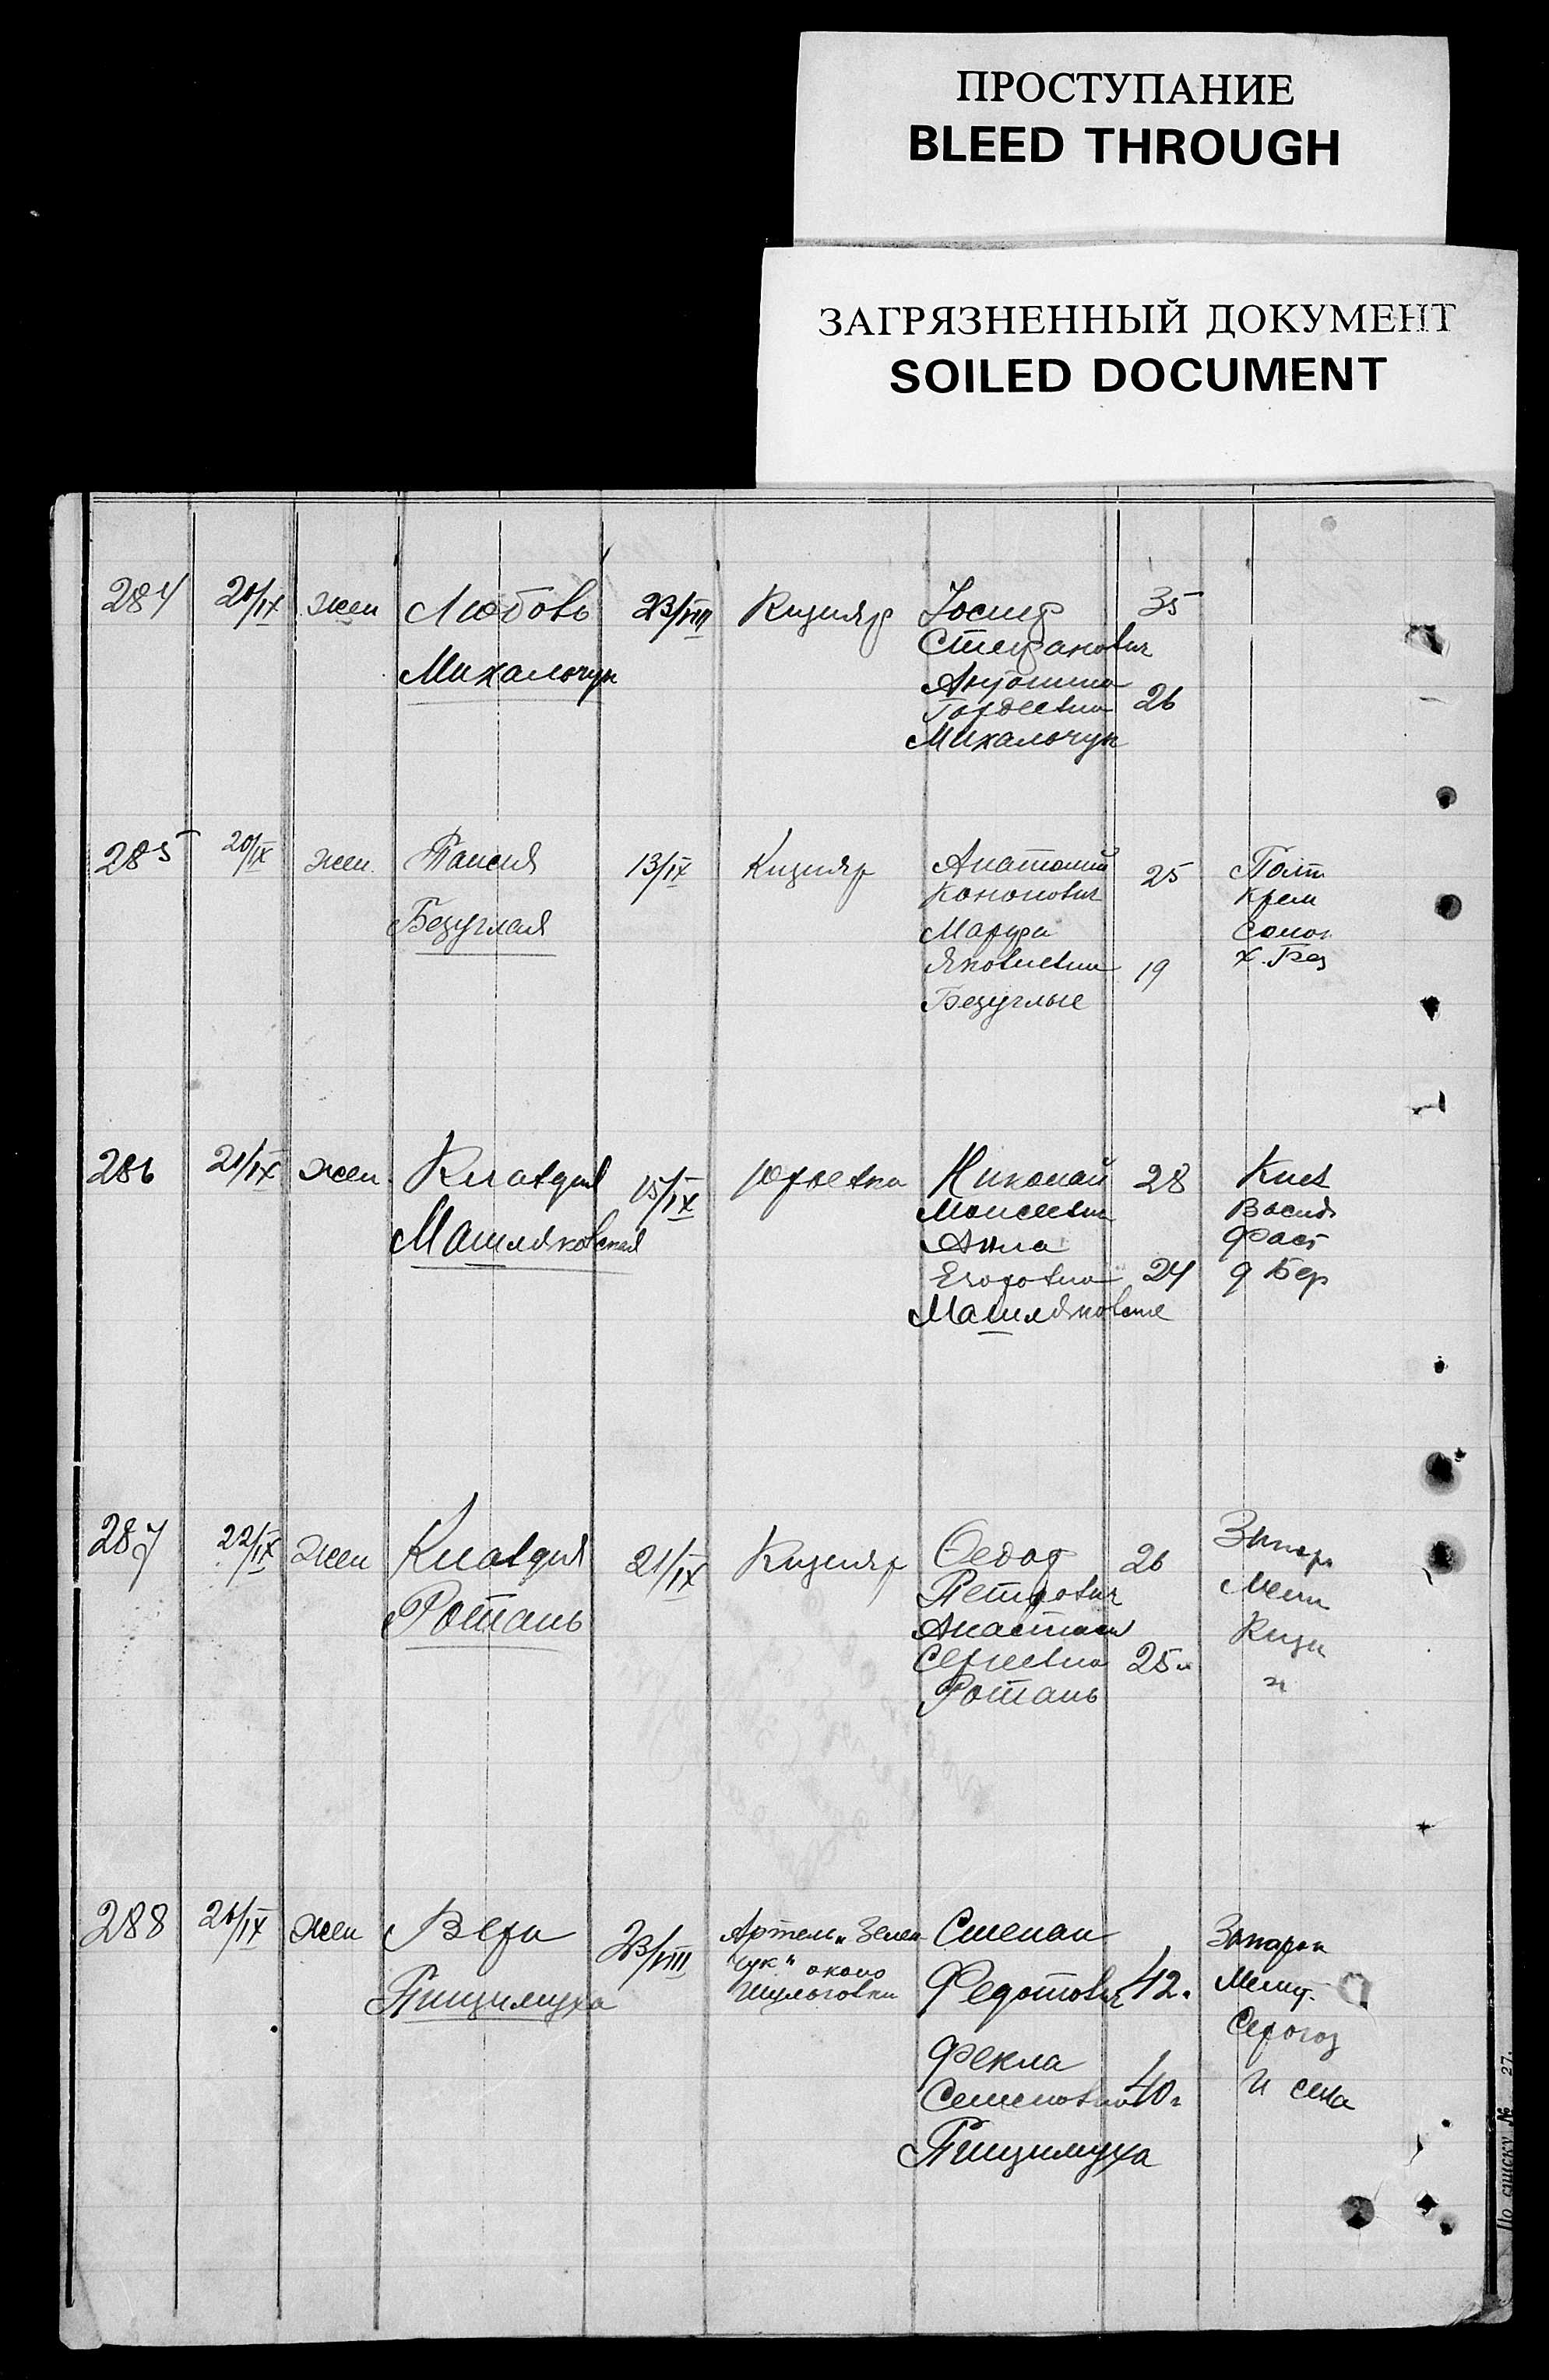 ПРОСТУПАНИЕ
BLEED THROUGH
ЗАГРЯЗНЕННЫЙ ДОКУМЕНТ
SOILED DOCUMENT
284 20/IX жен Любовь 23/VIII Кизияр Иосиф 35
Стефанович
Михальчук
26
Гордеевна
Михальчук
285 20/IX жен. Таисия 13/IX Кизияр Анатолий 25 Полт
Кононович Крем
Безуглая Марфа
Яковлевна 19 х.
Безуглые
286 21/IX жен Клавдия 15/IX Юрьевка Николай 28 Киев
Машляковская Моисеевич Васил
Анна Фаст
Егоровна 24 Бер
Машляковские
287 22/IX жен Клавдия 21/IX Кизияр Федор 26 Запор
Ротань Петрович Мели
Анастасия Кизи
Сергеевна 25 "
Ротань
288 26/IX жен Вера 23/VIII Артель „Зелен Степан Запорож
чук" около
Пицимуха Шульговки Федотович 42. Мелит.
Серогоз
Фекла
Семеновна 40 И села
Пицимуха
По списку № 27.